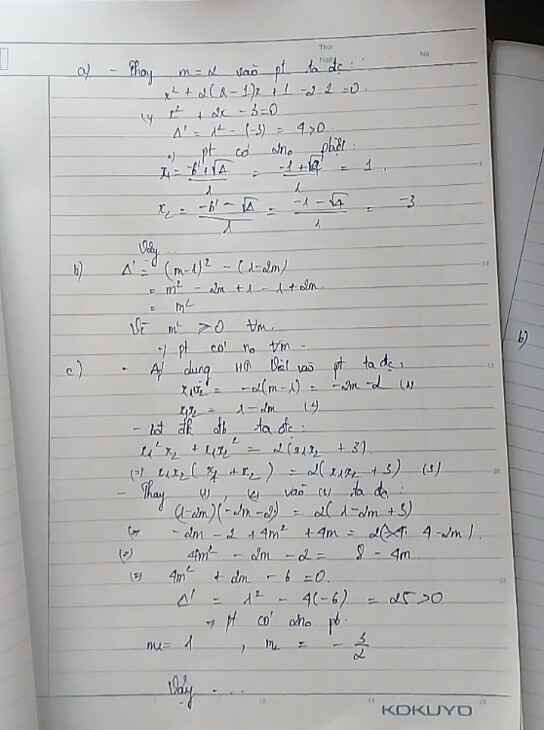 Thứ
Ngày
No
a) - Thay m = 2 vào pt ta đc:
x² + 2(2-1)x + 1 - 2.2 = 0
x² + 2x - 3 = 0
Δ' = 1² - (-3) = 4 > 0
pt có 2no phân
x₁ = (-b' + √Δ)/1 = (-1 + √4)/1 = 1
x₂ = (-b' - √Δ)/1 = (-1 - √4)/1 = -3
Vậy ...
b) Δ' = (m-1)² - (1-2m)
= m² - 2m + 1 - 1 + 2m
= m²
Vì m² ≥ 0 ∀m
=> pt có no ∀m
b)
c) - Áp dụng Viét vào pt ta đc:
x₁x₂ = -2(m-1) = -2m-2 (1)
x₁x₂ = 1-2m (2)
đk ta đc:
x₁²x₂ + x₁x₂² = 2(x₁x₂ + 3)
(=) x₁x₂(x₁ + x₂) = 2(x₁x₂ + 3) (3)
- Thay (1), (2) vào (3) ta đc:
(1-2m)(-2m-2) = 2(1-2m+3)
(=) -2m - 2 + 4m² + 4m = 2( 4-2m)
(=) 4m² - 2m - 2 = 8 - 4m
(=) 4m² + 2m - 6 = 0
Δ' = 1² - 4(-6) = 25 > 0
=> pt có 2no pb
m₁ = 1 , m₂ = -3/2
Vậy ...
KOKUYO